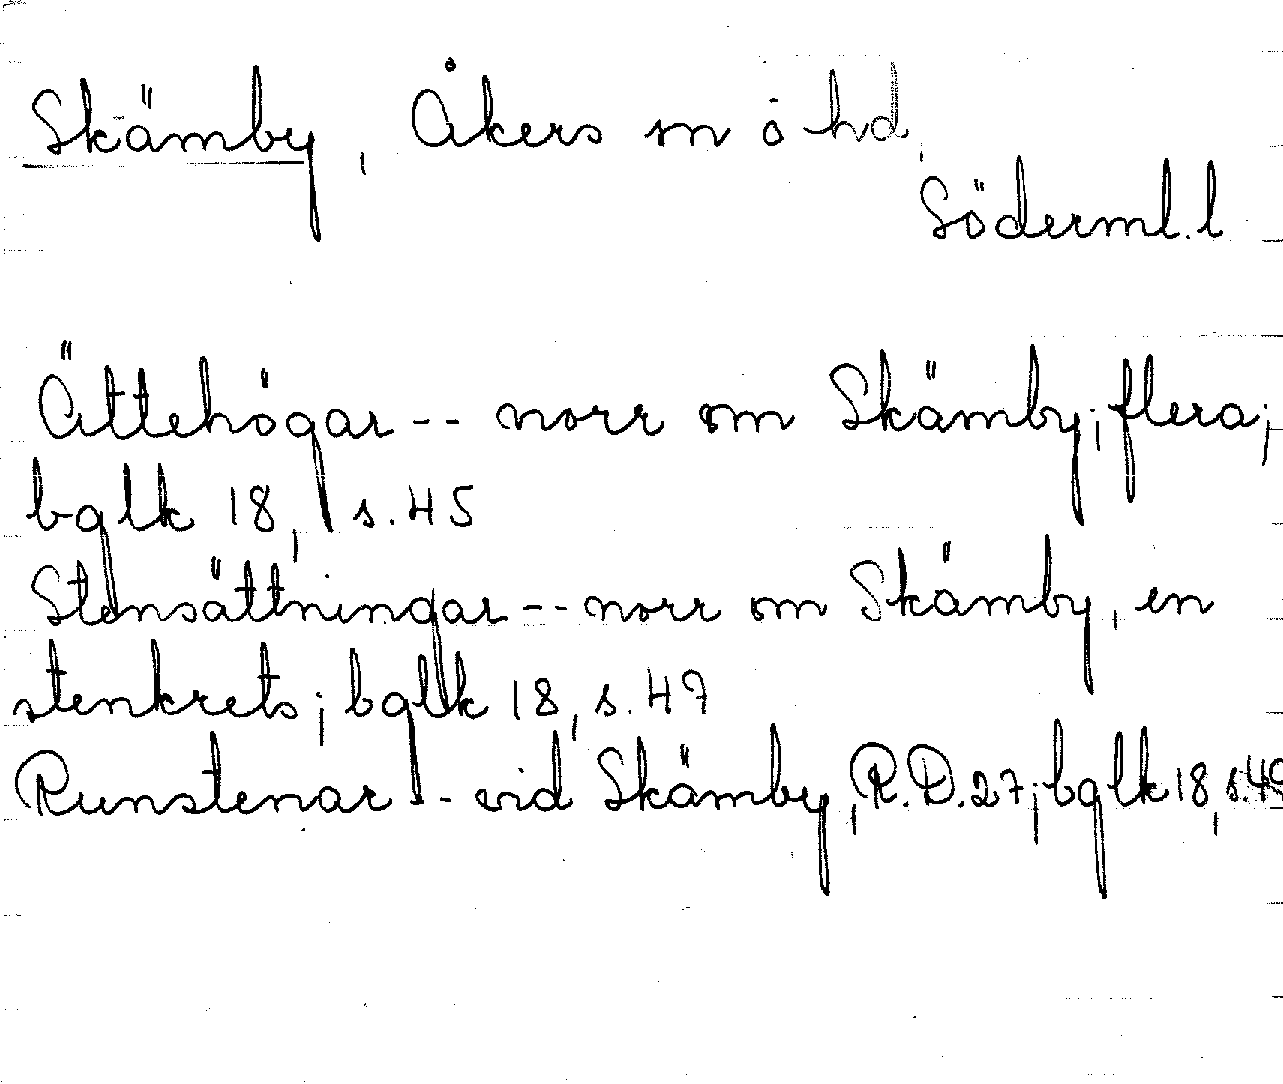 Skämby, Åkers sn o hd,
Söderml. l
Ättehögar -- norr om Skämby; flera;
bglk 18, s. 45
Stensättningar -- norr om Skämby, en
stenkrets; bglk 18, s. 47
Runstenar -- vid Skämby, R.D. 27; bglk 18, s.